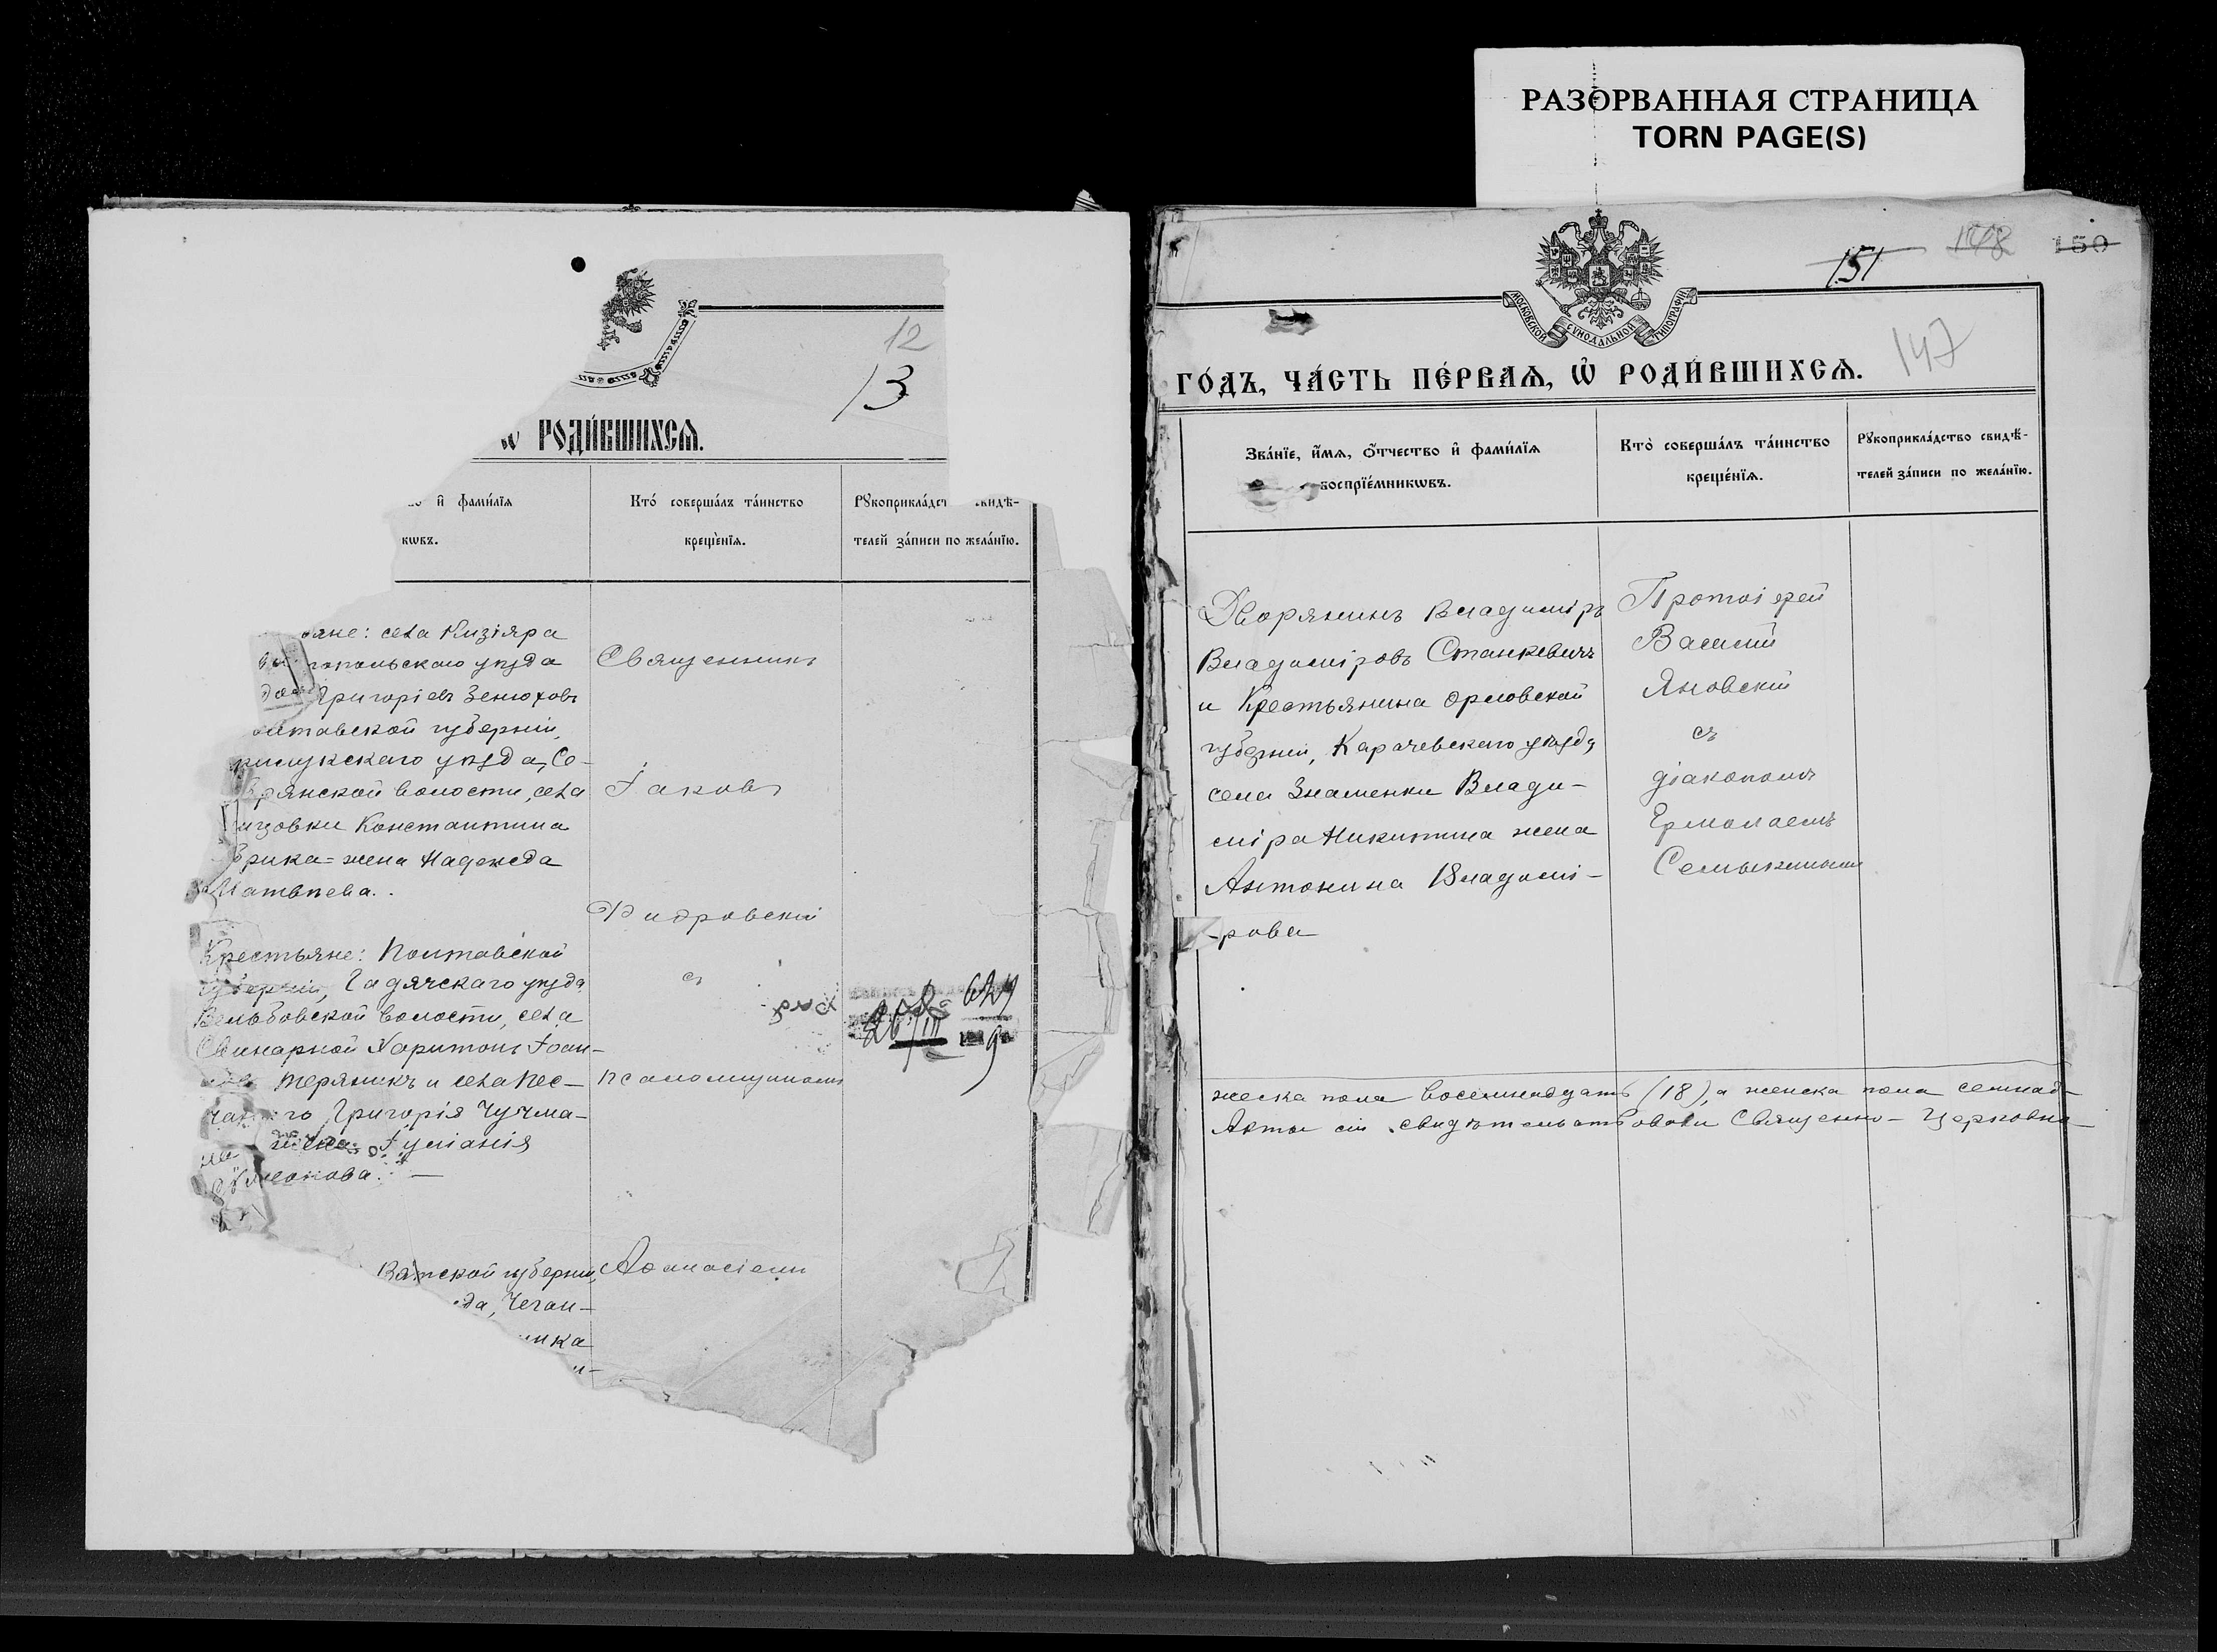 РАЗОРВАННАЯ СТРАНИЦА
TORN PAGE(S)
12
13
ѿ РОДИ́ВШИХСѦ.
и҆ фами́лїѧ
кѡвъ.
Кто̀ соверша́лъ та́инство
креще́нїѧ.
Рꙋкоприкла́дст свидѣ-
телей за́писи по жела́нїю.
яне: села Кизіяра
топольскаго уѣзда
Григоріевъ Зенюховъ
лтавской губерніи,
рилукскаго уѣзда, Со-
рянской волости, села
ицовки Константина
рика = жена Надежда
Матвѣева.
Крестьяне: Полтавской
губерніи, Гадячскаго уѣзда
Вельбовской волости, села
Свинарной Харитонъ Іоан-
Теряникъ и села Пес-
Григорія Чучма-
жена Іуліанія
Вятской губерніи,
да, Чеган-
ника
и-
Священникъ
Іаковъ
съ
псаломщикомъ
Аѳанасіемъ
26/III
151
148
150
147
МОСКОВСКОЙ СѴНОДАЛЬНОЙ ТИПОГРАФІИ
ГО́ДЪ, ЧА́СТЬ ПЕ́РВАѦ, Ѡ҆ РОДИ́ВШИХСѦ.
Зва́нїе, и҆́мѧ, ѻ҆́тчество и҆ фами́лїѧ
воспрїе́мникѡвъ.
Кто̀ соверша́лъ та́инство
креще́нїѧ.
Рꙋкоприкла́дство свидѣ́-
телей за́писи по жела́нїю.
Дворянинъ Владиміръ
Владиміровъ Станкевичъ
и Крестьянина Орловской
губерніи, Карачевскаго уѣзда
села Знаменки Влади-
міра Никитина жена
Антонина Владимі-
рова
Протоіерей
Василій
Яновскій
съ
діакономъ
Ермолаемъ
Семыкинымъ
жеска пола восемнадцать (18), а женска пола семнад-
Акты сіи свидѣтельствовали Священно-Церковно-